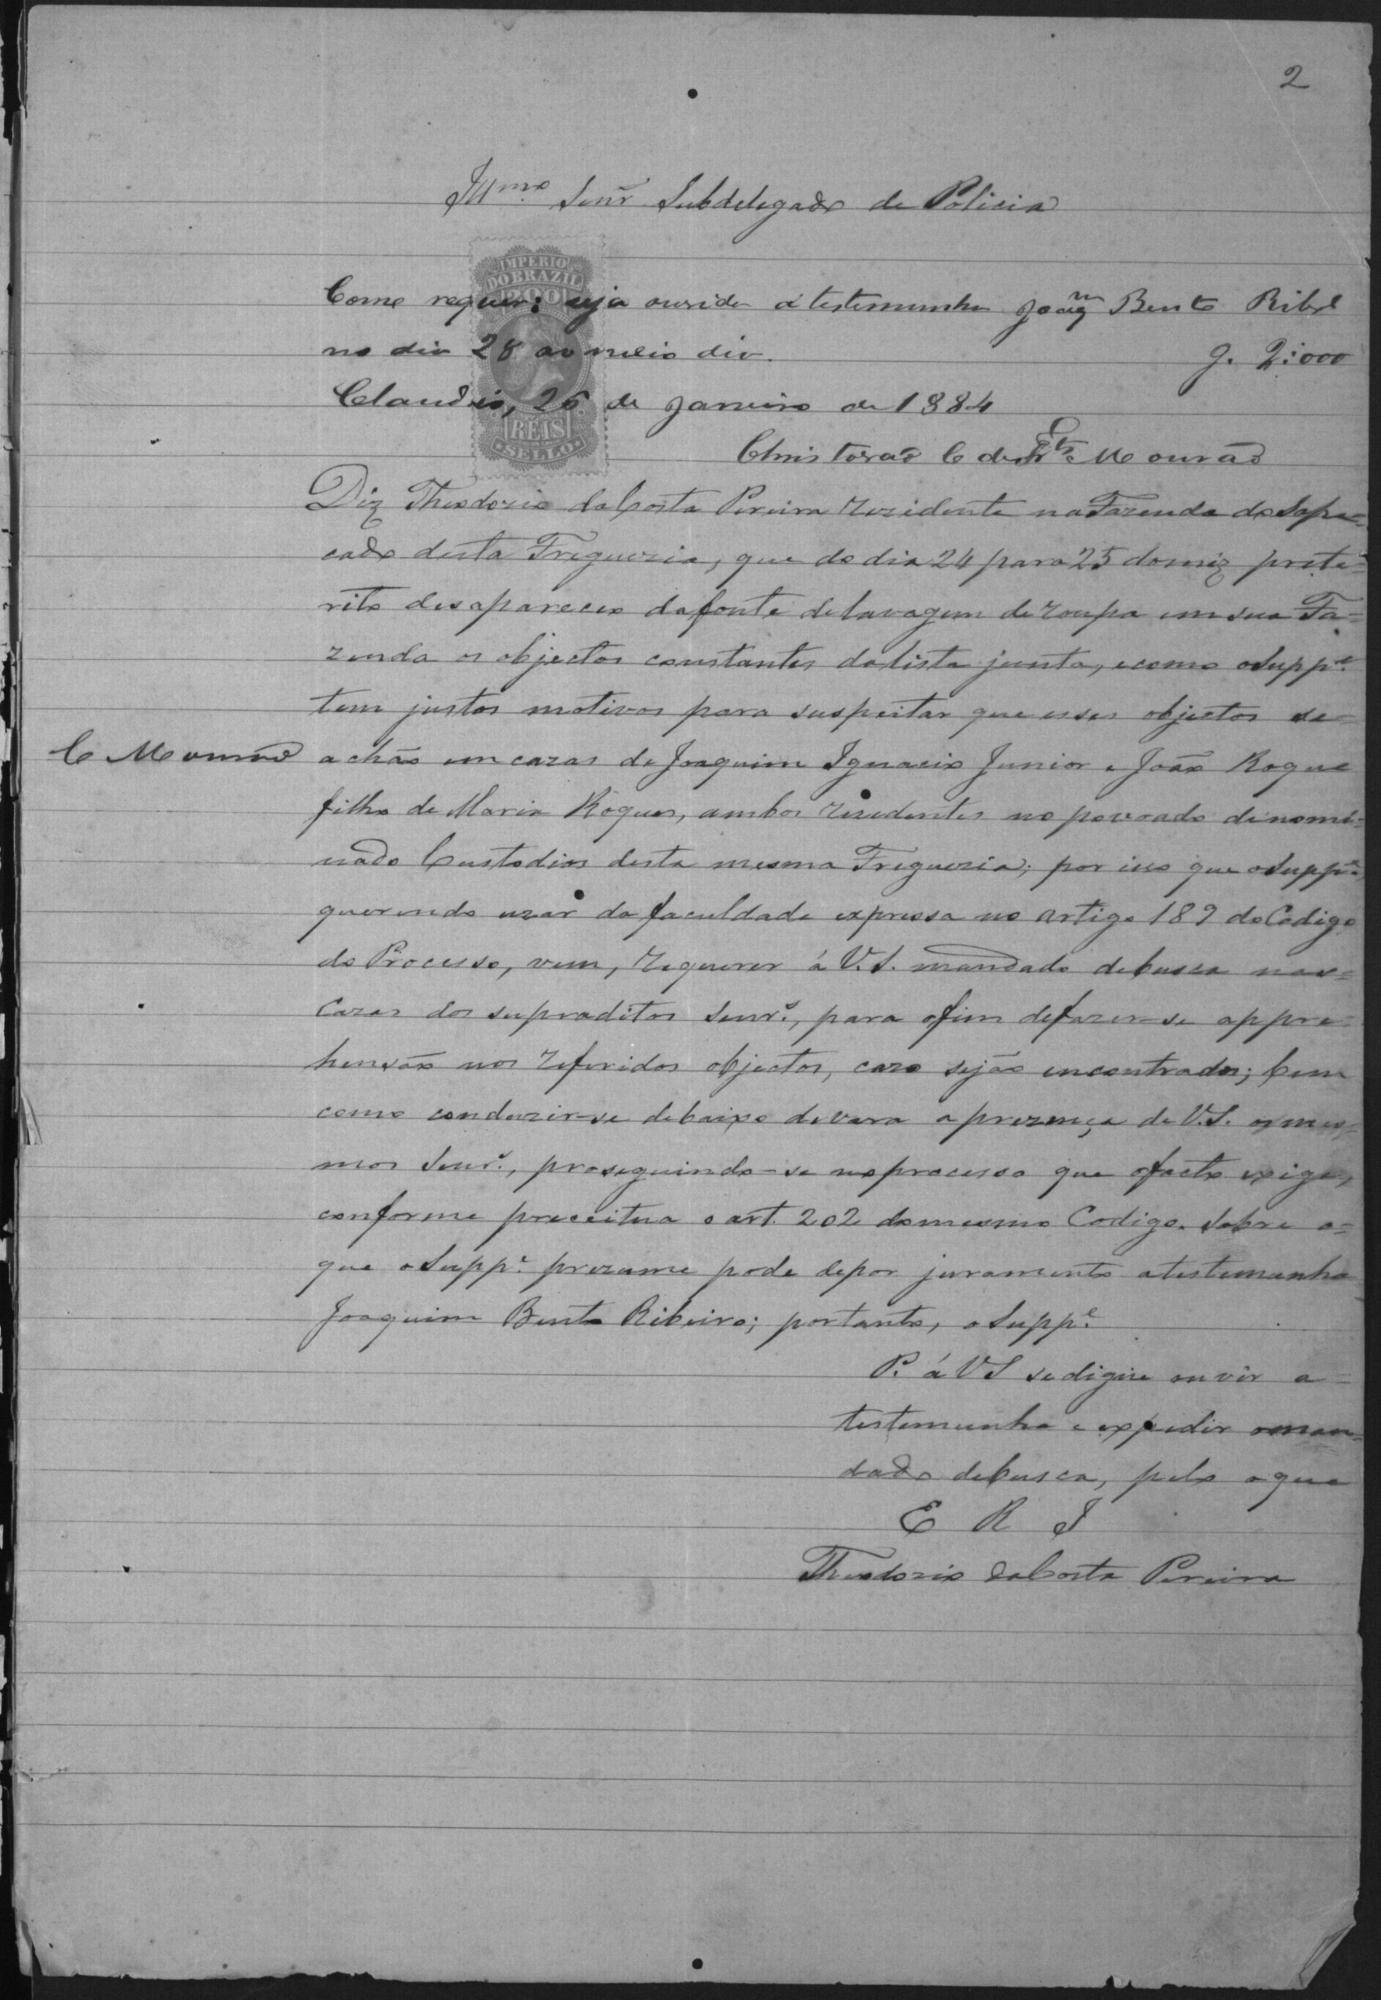 2
Illmo. Senr. Subdelegado de Policia
IMPERIO
DO BRAZIL
Como requer; seja ouvida a testemunha Joaqm Bento Ribo
no dia 28 ao meio dia. g. 2:000
Claudio, 26 de Janeiro de 1884
RÉIS
SELLO
Christovão C de Mourão
Diz Theodozio da Costa Pereira rezidente na Fazenda do Sape=
cado desta Freguezia, que do dia 24 para 25 do mez prete=
rito desapareceo da fonte de lavagem de roupa em sua Fa=
zenda os objectos constantes da lista junta, e como o Suppe.
tem justos motivos para suspeitar que esses objectos se=
C Mourão
achão em cazas de Joaquim Ignacio Junior e João Roque
filho de Maria Roques, ambos rezidentes no povoado denomi=
nado Custodios desta mesma Freguezia; por isso que o Suppe.
querendo uzar da faculdade expressa no artigo 189 do Codigo
do Processo, vem, requerer á V.S. mandado de busca nas=
cazas dos supraditos Senrs., para o fim de fazer-se appre=
hensão nos referidos objectos, cazo sejão encontrados; bem
como conduzir-se debaixo de vara a prezença de V.S. os mes=
mos Senrs., proseguindo-se no processo que o facto exige,
conforme preceitua o art. 202 do mesmo Codigo. Sobre o=
que o Suppe. prezume pode depor juramento a testemunha
Joaquim Bento Ribeiro; portanto, o Suppe.
P. á VS se digne ouvir a=
testemunha e expedir o man=
dado de busca, pelo o que
E R J
Theodozio da Costa Pereira